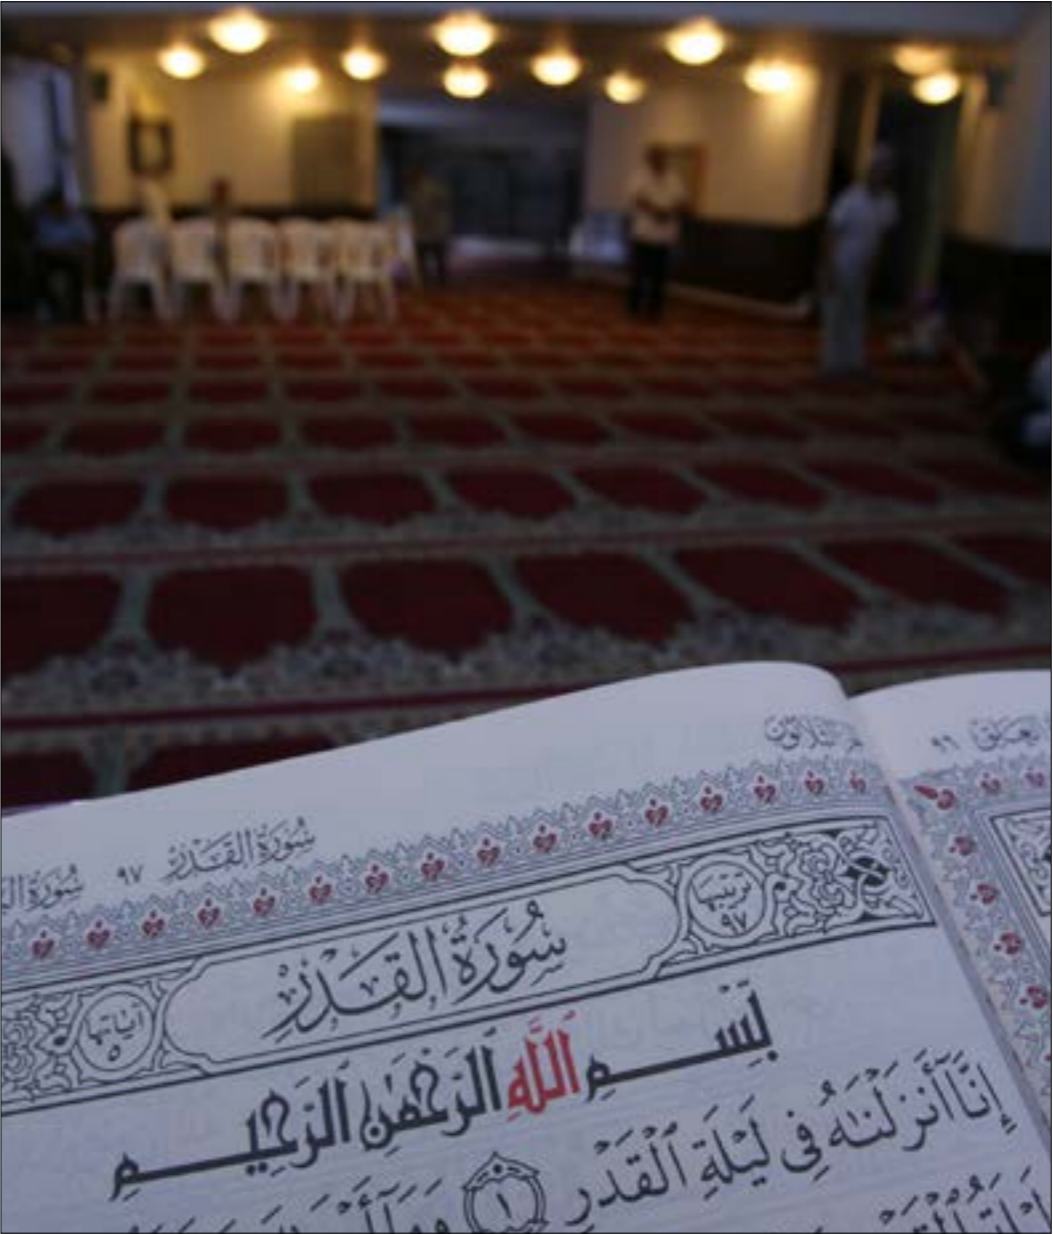 العلق ٩٦
الثلاثون
سُورَةُ القَدْرِ ٩٧
سُورَةُ
ترتيبها ٩٧
سُورَةُ القَدْرِ
آياتها ٥
بِسْمِ اللَّهِ الرَّحْمَٰنِ الرَّحِيمِ
إِنَّا أَنزَلْنَٰهُ فِي لَيْلَةِ ٱلْقَدْرِ ١